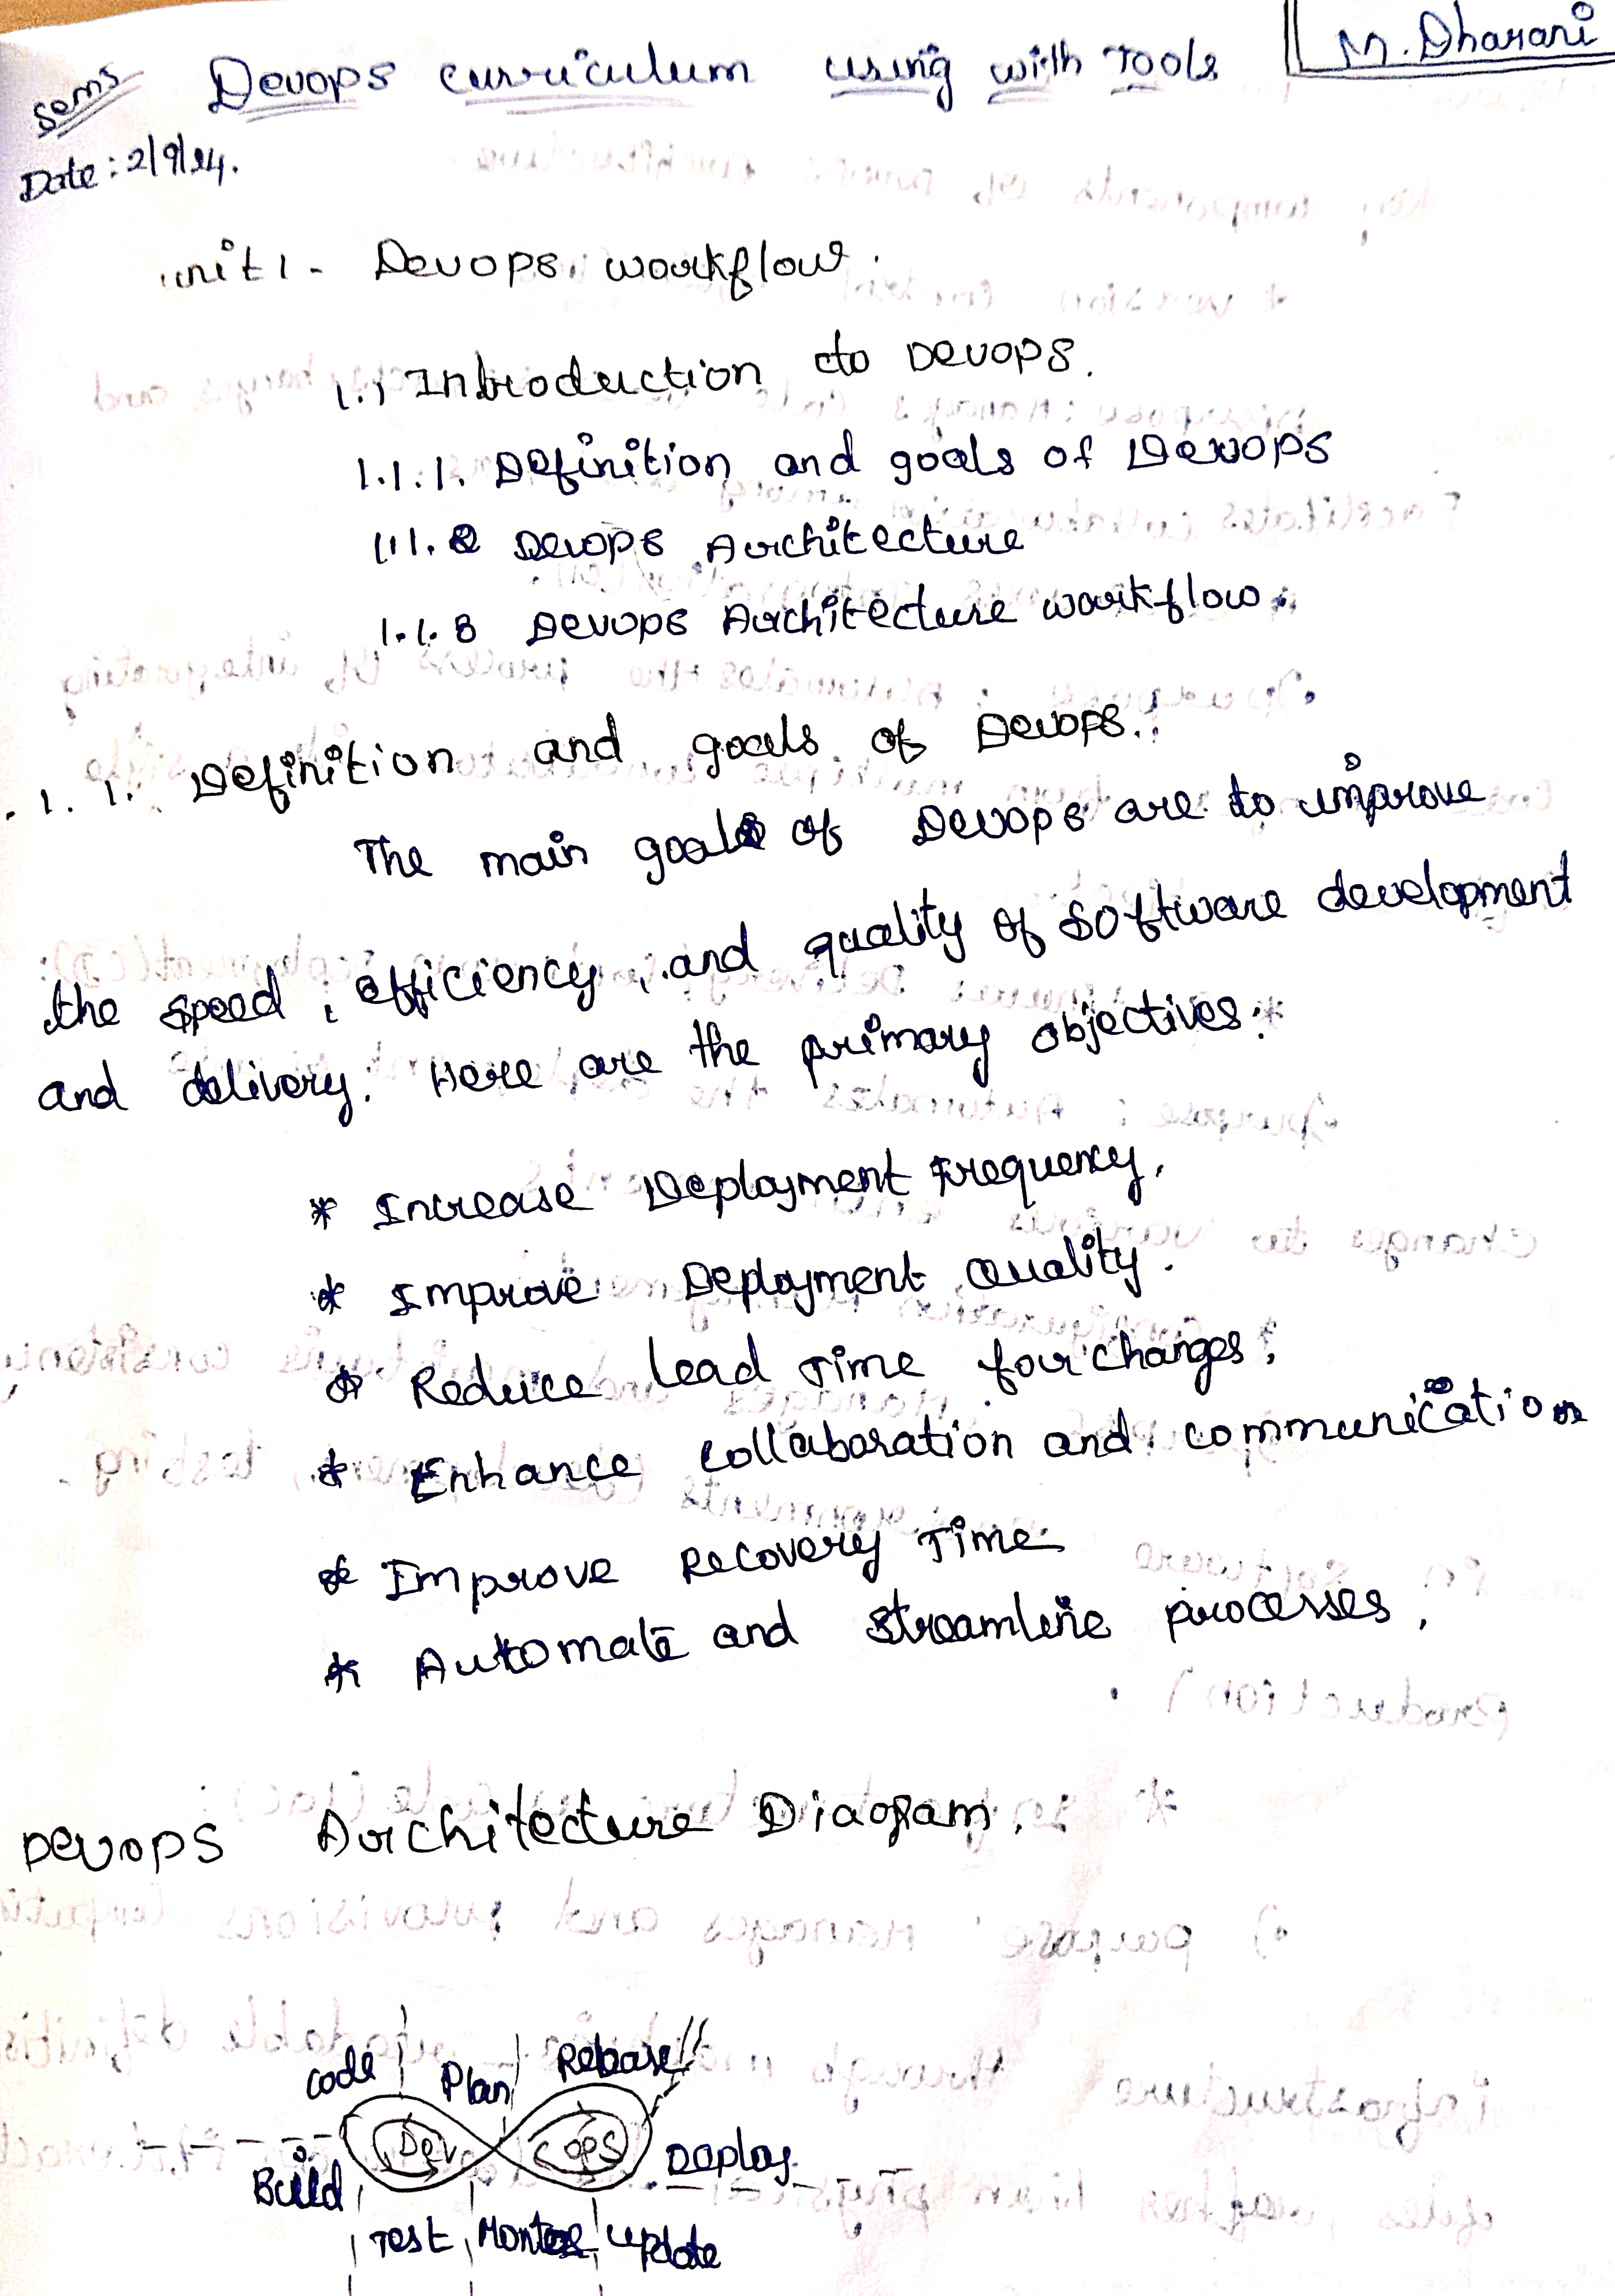 Sem5 Devops curriculum using with Tools M. Dharani
Date : 2/9/24.
unit 1 - Devops workflow.
1.1 Introduction to Devops.
1.1.1. Definition and goals of Devops
1.1.2 Devops Architecture
1.1.3 Devops Architecture workflow.
1.1. Definition and goals of Devops:
The main goals of Devops are to improve
the speed, efficiency, and quality of software development
and delivery. Here are the primary objectives:
* Increase Deployment Frequency,
* Improve Deployment Quality.
* Reduce Lead Time for changes,
* Enhance collaboration and communication
* Improve Recovery Time
* Automate and streamline processes,
Devops Architecture Diagram.
code Plan Rebase
Dev Ops
Build Deploy
Test Montor update